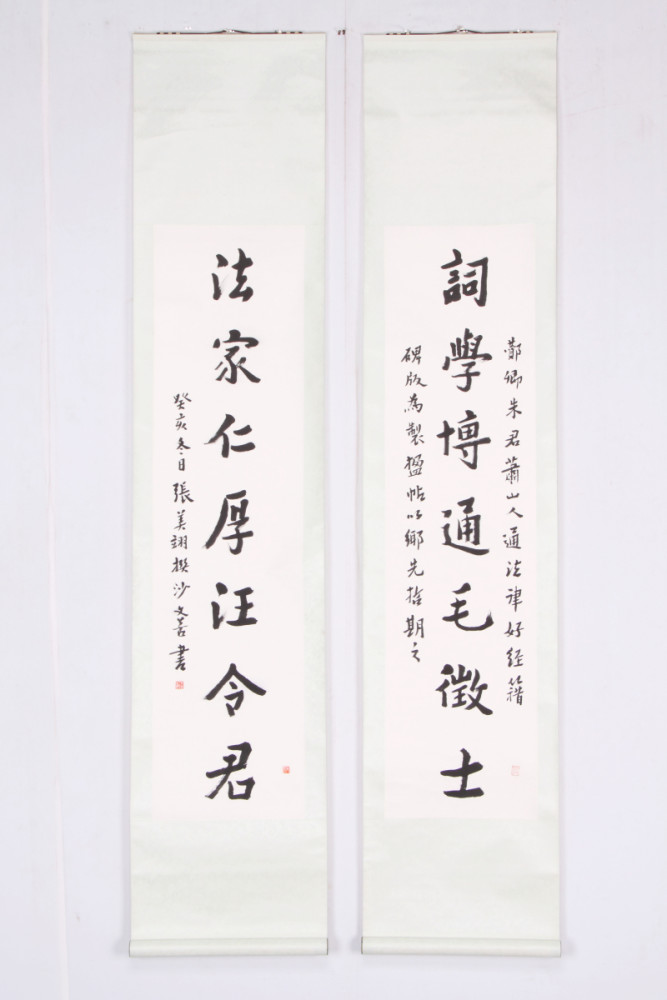 詞學博通毛徵士
酇卿朱君蕭山人通法律好經籍
碑版為製楹帖以鄉先哲期之
法家仁厚汪令君
癸亥冬日張美翊撰沙文若書